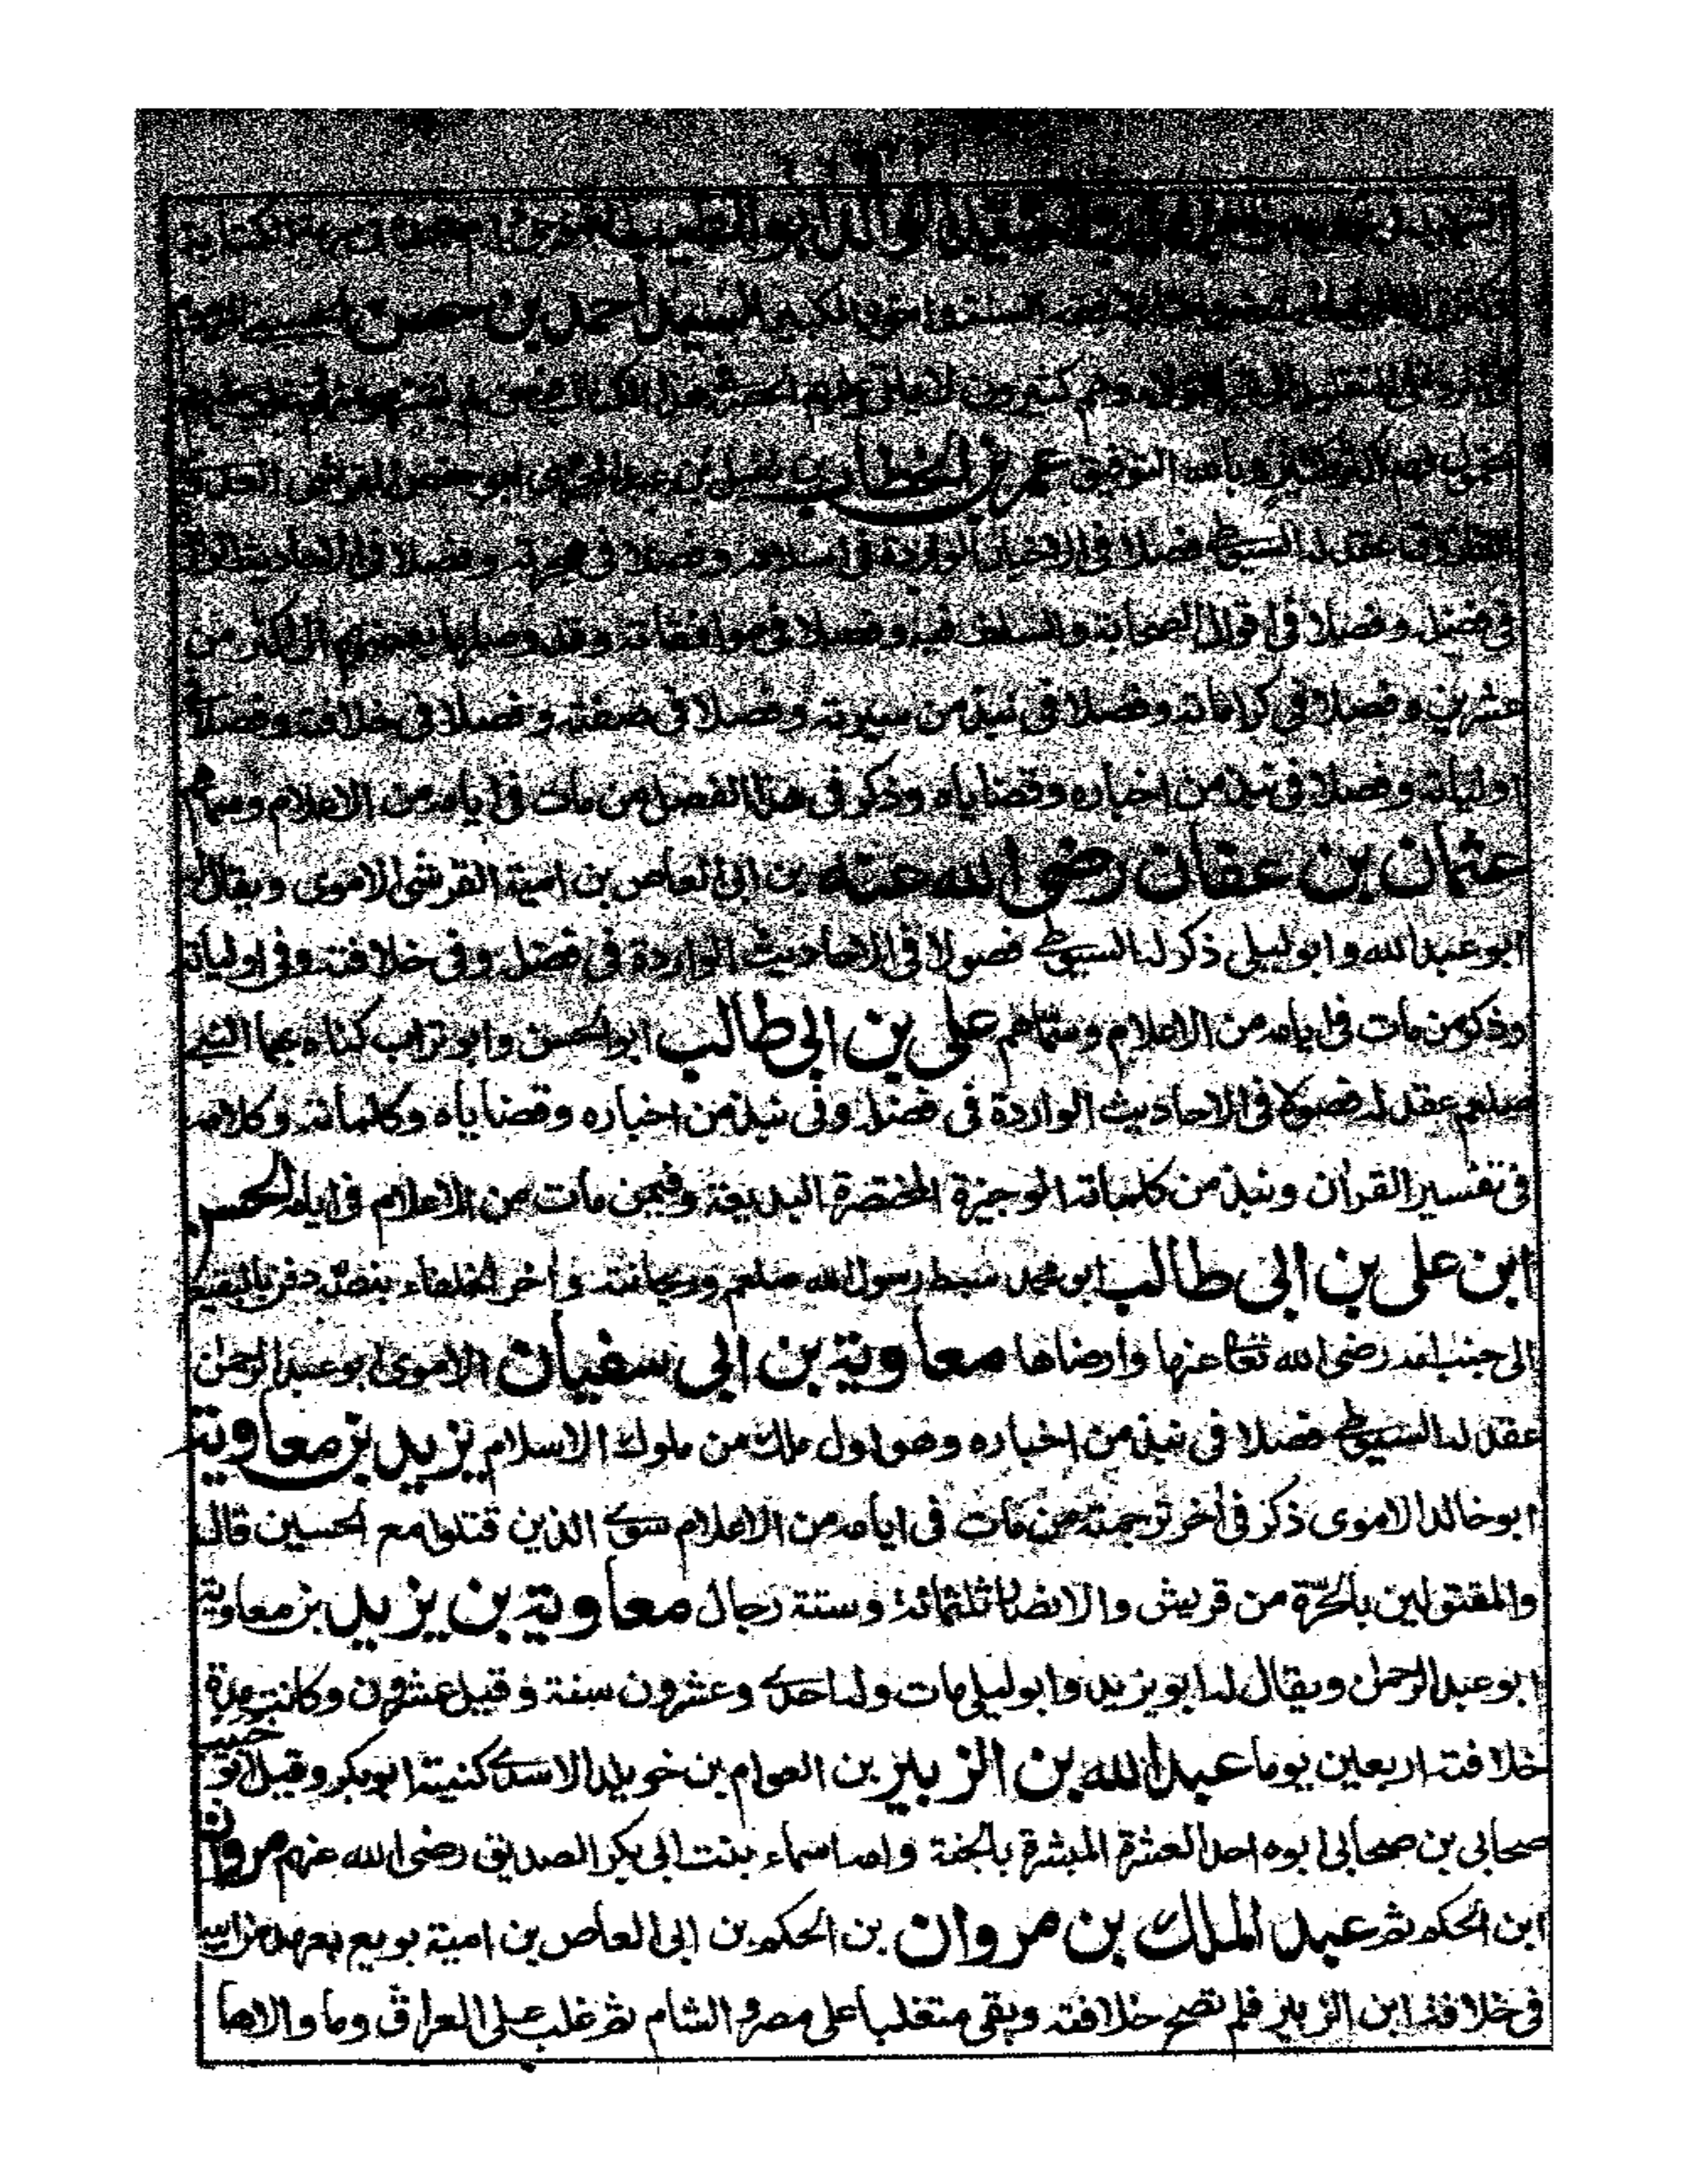 الوالد ابو الطيب
السيد احمد بن حسن
التوفيق عمر بن الخطاب بن نفيل بن عبد العزى ابو حفص القرشى العدوى
عقد له السيوطى فصلا فى الاخبار الواردة فى اسلامه وفصلا فى هجرته وفصلا فى الاحاديث الواردة
فى فضله وفصلا فى اقوال الصحابة والسلف فيه وفصلا فى موافقاته وقد وصلها بعضهم الى اكثر من
عشرين وفصلا فى كراماته وفصلا فى نبذ من سيرته وفصلا فى صفته وفصلا فى خلافته وفصلا فى
اولياته وفصلا فى نبذ من اخباره وقضاياه وذكر فى هذا الفصل من مات فى ايامه من الاعلام وسماهم
عثمان بن عفان رضى الله عنه بن ابى العاص بن امية القرشى الاموى ويقال
ابو عبد الله وابو ليلى ذكر له السيوطى فصولا فى الاحاديث الواردة فى فضله وفى خلافته وفى اولياته
وذكر من مات فى ايامه من الاعلام وسماهم على بن ابى طالب ابو الحسن وابو تراب كناه بها النبى
صلعم عقد له فصولا فى الاحاديث الواردة فى فضله وفى نبذ من اخباره وقضاياه وكلماته وكلامه
فى تفسير القرآن ونبذ من كلماته الوجيزة المختصرة البديعة وفيمن مات من الاعلام فى ايامه الحسن
ابن على بن ابى طالب ابو محمد سبط رسول الله صلعم وريحانته وآخر الخلفاء بنصه دفن بالبقيع
الى جنب امه رضى الله تعا عنها وارضاها معاوية بن ابى سفيان الاموى ابو عبد الرحمن
عقد له السيوطى فصلا فى نبذ من اخباره وهو اول ملك من ملوك الاسلام يزيد بن معاوية
ابو خالد الاموى ذكر فى آخر ترجمته من مات فى ايامه من الاعلام سوى الذين قتلوا مع الحسين قال
والمقتولين بالحرة من قريش والانصار ثلثمائة وستة رجال معاوية بن يزيد بن معاوية
ابو عبد الرحمن ويقال له ابو يزيد وابو ليلى مات وله احدى وعشرون سنة وقيل عشرون وكانت مدة
خلافته اربعين يوما عبد الله بن الزبير بن العوام بن خويلد الاسدى كنيته ابو بكر وقيل ابو خبيب
صحابى بن صحابى ابوه احد العشرة المبشرة بالجنة وامه اسماء بنت ابى بكر الصديق رضى الله عنهم مروان
ابن الحكم ثم عبد الملك بن مروان بن الحكم بن ابى العاص بن امية بويع بعهد من ابيه
فى خلافة ابن الزبير فلم تصح خلافته وبقى متغلبا على مصر والشام ثم غلب على العراق وما والاها